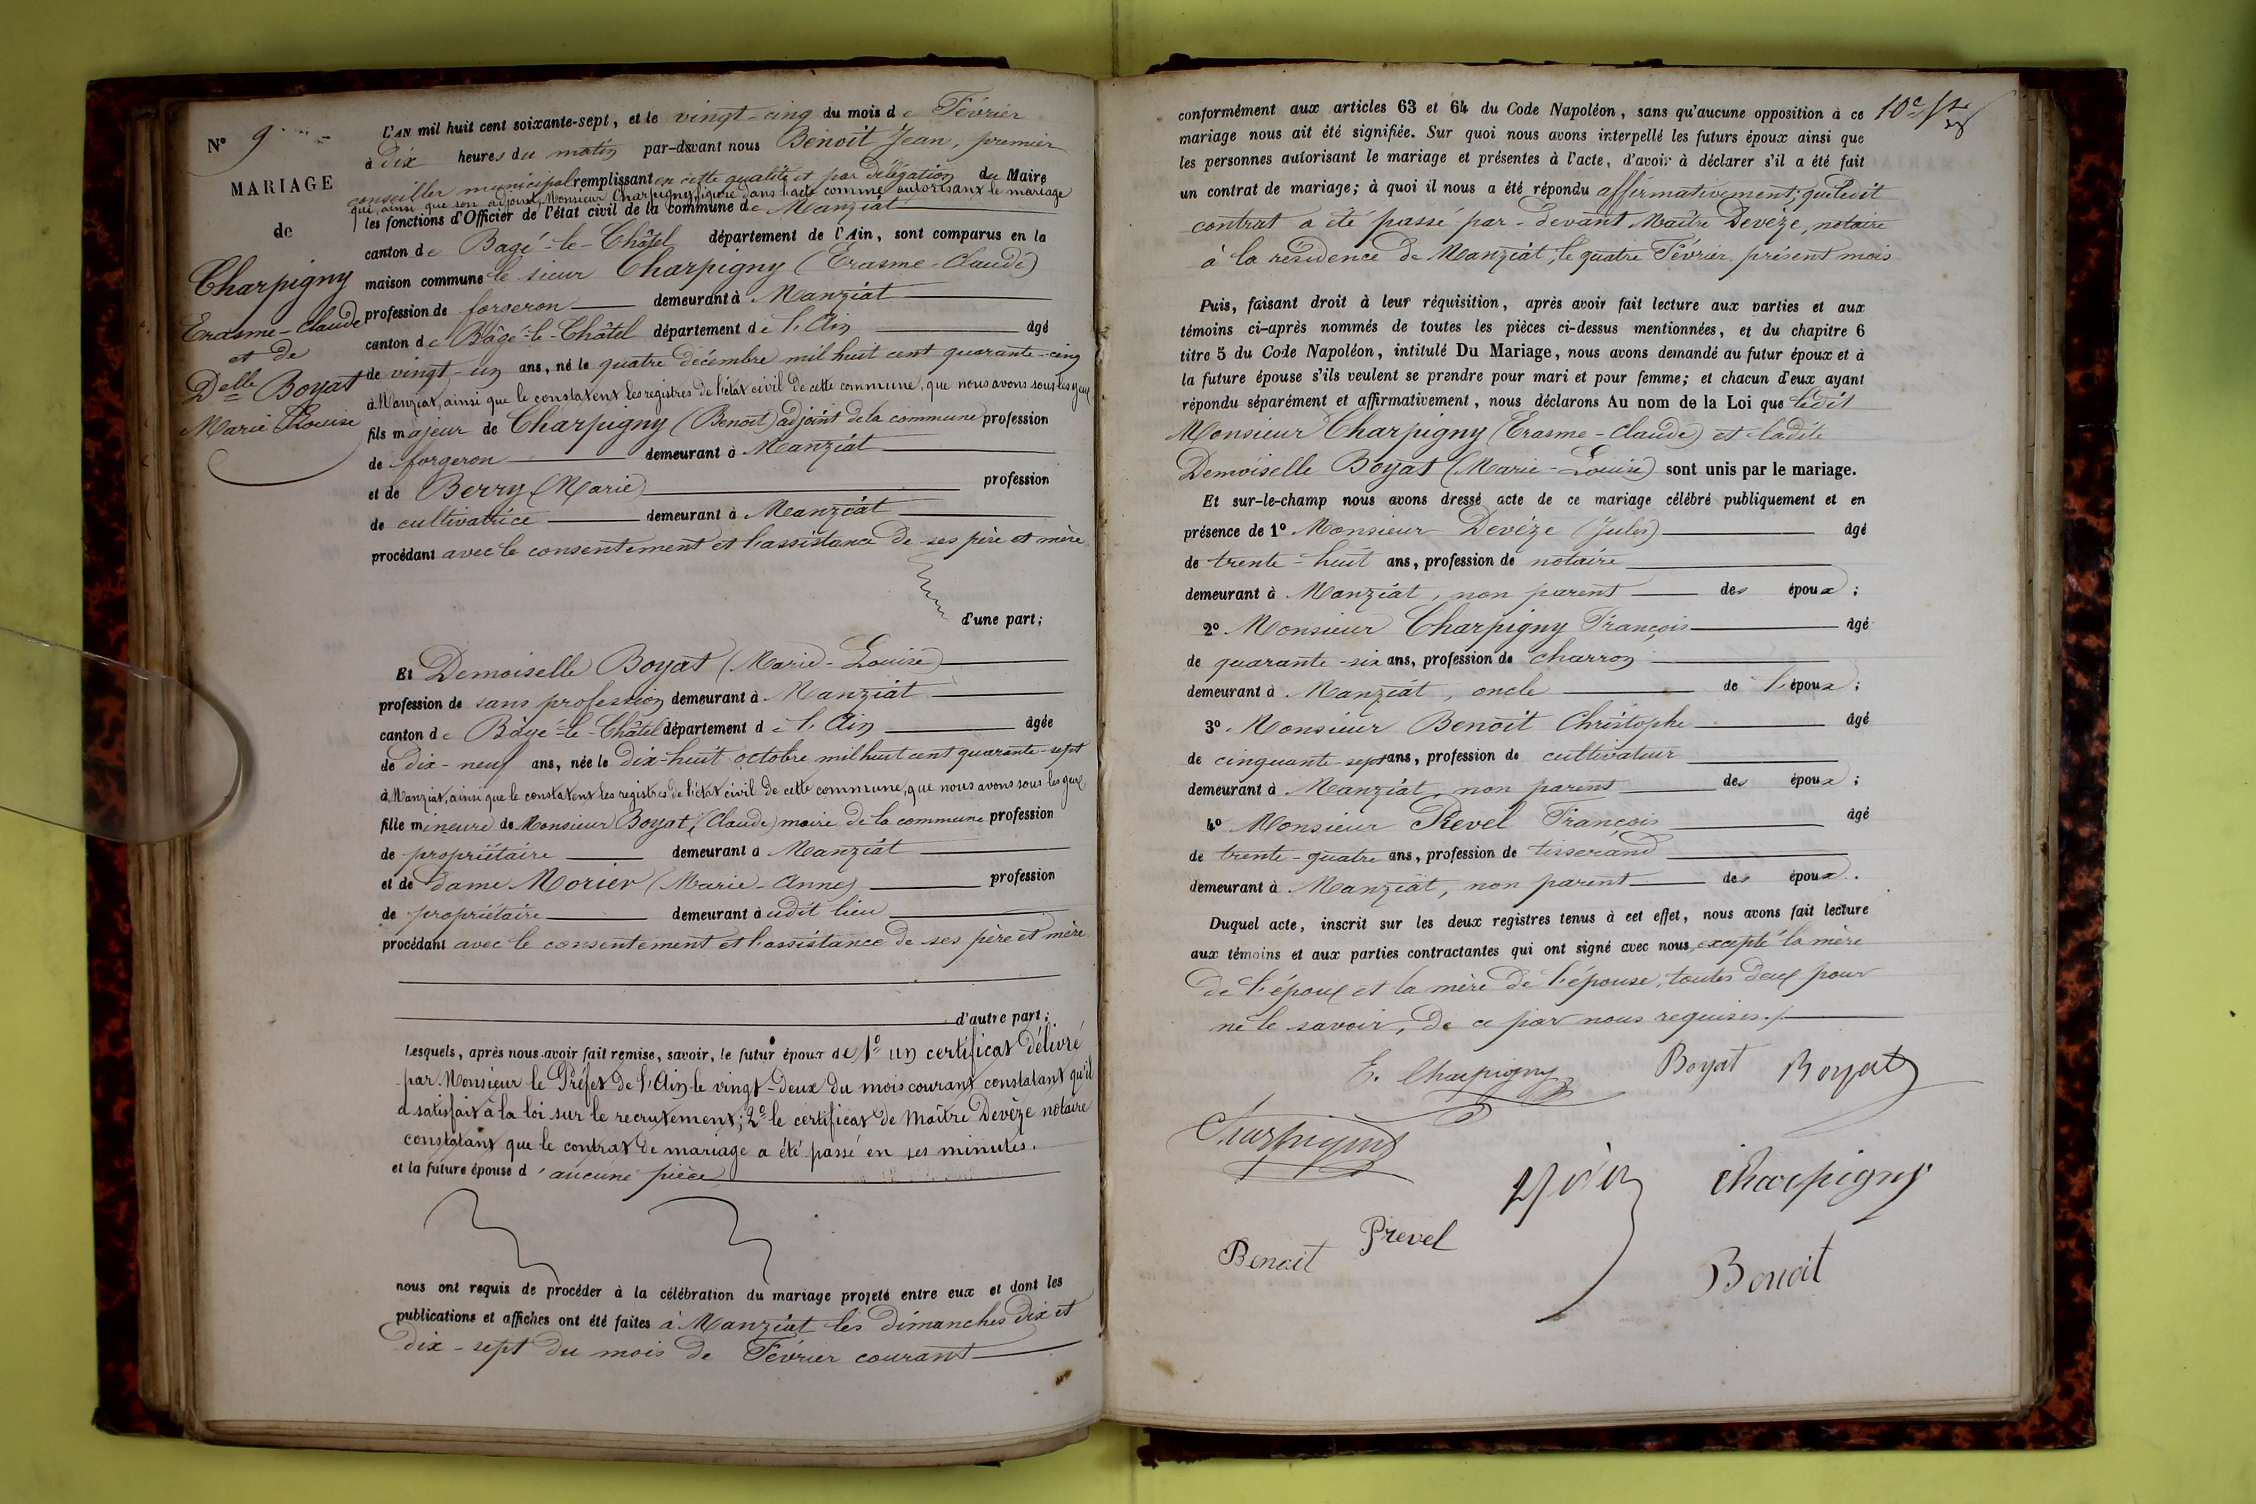 N° 9
MARIAGE
de
Charpigny
Erasme-Claude
et de
Delle Boyat
Marie Louise
L'AN mil huit cent soixante-sept, et le vingt-cinq du mois de Février
à dix heures du matin par-devant nous Benoit Jean, premier
conseiller municipal remplissant en cette qualité et par délégation du Maire
qui, ainsi que son adjoint, Monsieur Charpigny, figure dans l'acte comme autorisant le mariage
les fonctions d'Officier de l'état civil de la commune de Manziat
canton de Bagé-le-Châtel département de l'Ain, sont comparus en la
maison commune le sieur Charpigny (Erasme-Claude)
profession de forgeron demeurant à Manziat
canton de Bâgé-le-Châtel département de l'Ain âgé
de vingt-un ans, né le quatre décembre mil huit cent quarante-cinq
à Manziat, ainsi que le constatent les registres de l'état civil de cette commune, que nous avons sous les yeux
fils majeur de Charpigny (Benoit) adjoint de la commune profession
de forgeron demeurant à Manziat
et de Berry (Marie) profession
de cultivatrice demeurant à Manziat
procédant avec le consentement et l'assistance de ses père et mère
d'une part;
Et Demoiselle Boyat (Marie-Louise)
profession de sans profession demeurant à Manziat
canton de Bâgé-le-Châtel département de l'Ain âgée
de dix-neuf ans, née le dix-huit octobre mil huit cent quarante-sept
à Manziat, ainsi que le constatent les registres de l'état civil de cette commune, que nous avons sous les yeux
fille mineure de Monsieur Boyat, (Claude) maire de la commune profession
de propriétaire demeurant à Manziat
et de dame Morier (Marie-Anne) profession
de propriétaire demeurant à udit lieu
procédant avec le consentement et l'assistance de ses père et mère
d'autre part;
Lesquels, après nous avoir fait remise, savoir, le futur époux de 1° un certificat délivré
par Monsieur le Préfet de l'Ain le vingt-deux du mois courant constatant qu'il
a satisfait à la loi sur le recrutement; 2° le certificat de Maître Devèze notaire
constatant que le contrat de mariage a été passé en ses minutes.
et la future épouse d'aucune pièce
nous ont requis de procéder à la célébration du mariage projeté entre eux et dont les
publications et affiches ont été faites à Manziat les dimanches dix et
dix-sept du mois de Février courant
conformément aux articles 63 et 64 du Code Napoléon, sans qu'aucune opposition à ce
mariage nous ait été signifiée. Sur quoi nous avons interpellé les futurs époux ainsi que
les personnes autorisant le mariage et présentes à l'acte, d'avoir à déclarer s'il a été fait
un contrat de mariage; à quoi il nous a été répondu affirmativement, que ledit
contrat a été passé par-devant Maître Devèze, notaire
à la résidence de Manziat, le quatre Février présent mois
Puis, faisant droit à leur réquisition, après avoir fait lecture aux parties et aux
témoins ci-après nommés de toutes les pièces ci-dessus mentionnées, et du chapitre 6
titre 5 du Code Napoléon, intitulé Du Mariage, nous avons demandé au futur époux et à
la future épouse s'ils veulent se prendre pour mari et pour femme; et chacun d'eux ayant
répondu séparément et affirmativement, nous déclarons Au nom de la Loi que ledit
Monsieur Charpigny (Erasme-Claude) et ladite
Demoiselle Boyat (Marie-Louise) sont unis par le mariage.
Et sur-le-champ nous avons dressé acte de ce mariage célébré publiquement et en
présence de 1° Monsieur Devèze (Jules) âgé
de trente-huit ans, profession de notaire
demeurant à Manziat, non parent des époux;
2° Monsieur Charpigny François âgé
de quarante-six ans, profession de charron
demeurant à Manziat, oncle de l'époux;
3° Monsieur Benoit Christophe âgé
de cinquante-sept ans, profession de cultivateur
demeurant à Manziat, non parent des époux;
4° Monsieur Prevel François âgé
de trente-quatre ans, profession de tisserand
demeurant à Manziat, non parent des époux.
Duquel acte, inscrit sur les deux registres tenus à cet effet, nous avons fait lecture
aux témoins et aux parties contractantes qui ont signé avec nous, excepté la mère
de l'époux et la mère de l'épouse, toutes deux pour
ne le savoir, de ce par nous requises./.
E. Charpigny Boyat Boyat
Charpigny
Charpigny
Benoit Prevel
Benoit